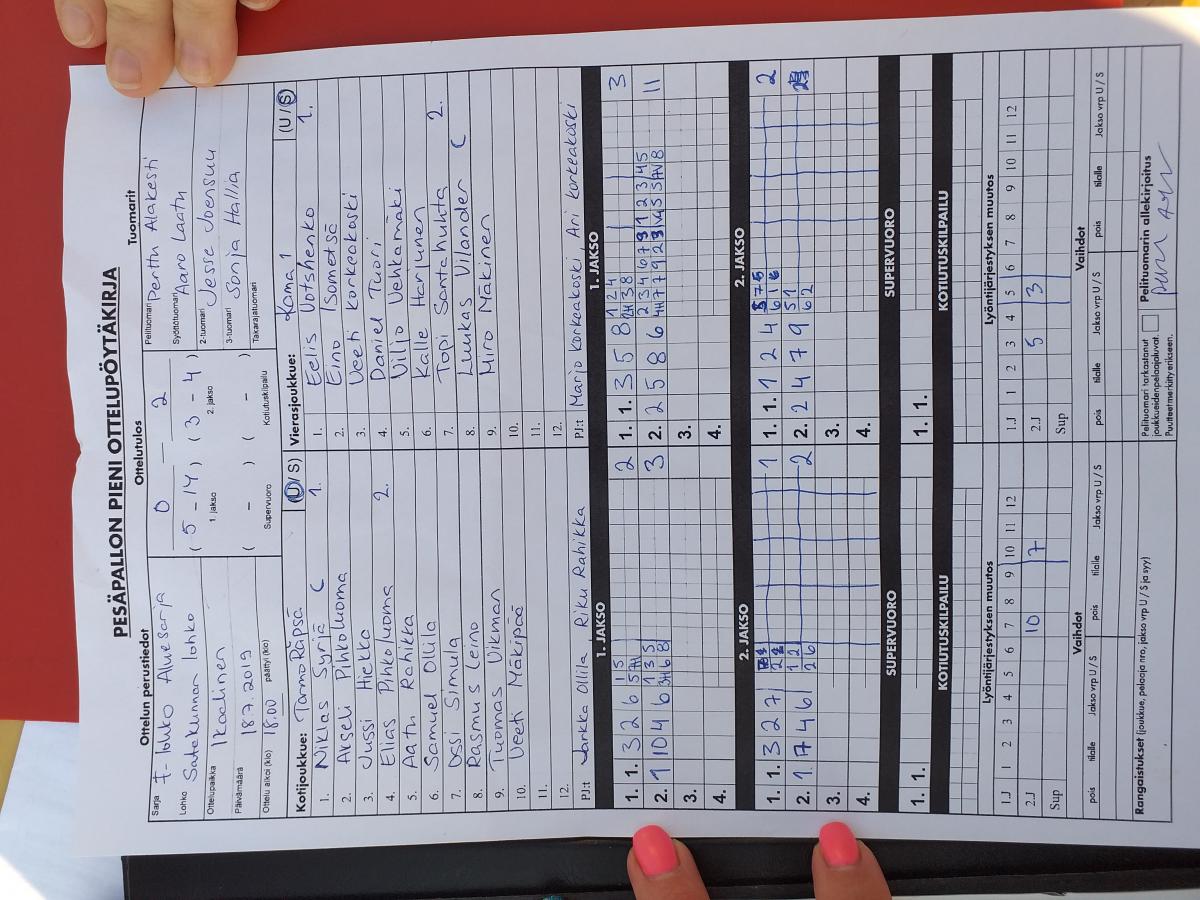 PESÄPALLON PIENI OTTELUPÖYTÄKIRJA
Ottelun perustiedot
Sarja F-lohko Aluesarja
Lohko Satakunnan lohko
Ottelupaikka Ikaalinen
Päivämäärä 18.7.2019
Ottelu alkoi (klo) 18.00 päättyi (klo)
Ottelutulos
0 – 2
( 5 - 14 ) ( 3 - 4 )
1. jakso 2. jakso
( - ) ( - )
Supervuoro Kotiutuskilpailu
Tuomarit
Pelituomari Perttu Alakesti
Syöttötuomari Aaro Laatu
2-tuomari Jesse Joensuu
3-tuomari Sonja Hallia
Takarajatuomari
Kotijoukkue: TarmoRäpsä (U / S)
1. Niklas Syrjä C 1.
2. Akseli Pihkoluoma
3. Jussi Hiekka
4. Elias Pihkoluoma 2.
5. Aatu Rahikka
6. Samuel Ollila
7. Ossi Simula
8. Rasmus Leino
9. Tuomas Vikman
10. Veeti Mäkipää
11.
12.
PJ:t Jarkka Ollila, Riku Rahikka
Vierasjoukkue: Kama 1 (U / S)
1. Eelis Votshenko 1.
2. Eino Isometsä
3. Veeti Korkeakoski
4. Daniel Tuori
5. Viljo Vehkamäki
6. Kalle Harjunen
7. Topi Santahuhta 2.
8. Luukas Vilander C
9. Miro Mäkinen
10.
11.
12.
PJ:t Marjo Korkeakoski, Ari Korkeakoski
1. JAKSO
1. 1. 3 2 6 2
2. 1 10 4 6 3
3.
4.
1. JAKSO
1. 1. 3 5 8 3
2. 2 5 8 6 11
3.
4.
2. JAKSO
1. 1. 3 2 7 1
2. 1 7 4 6 2
3.
4.
2. JAKSO
1. 1. 1 2 4 2
2. 2 4 7 9
3.
4.
SUPERVUORO
1. 1.
SUPERVUORO
1. 1.
KOTIUTUSKILPAILU
KOTIUTUSKILPAILU
Lyöntijärjestyksen muutos
1.J 1 2 3 4 5 6 7 8 9 10 11 12
2.J 10 7
Sup
Lyöntijärjestyksen muutos
1.J 1 2 3 4 5 6 7 8 9 10 11 12
2.J 5 3
Sup
Vaihdot
pois tilalle Jakso vrp U / S pois tilalle Jakso vrp U / S
Vaihdot
pois tilalle Jakso vrp U / S pois tilalle Jakso vrp U / S
Rangaistukset (joukkue, pelaaja nro, jakso vrp U / S ja syy)
Pelituomari tarkastanut
joukkueiden pelaajaluvat.
Puutteet merkitty erikseen.
Pelituomarin allekirjoitus